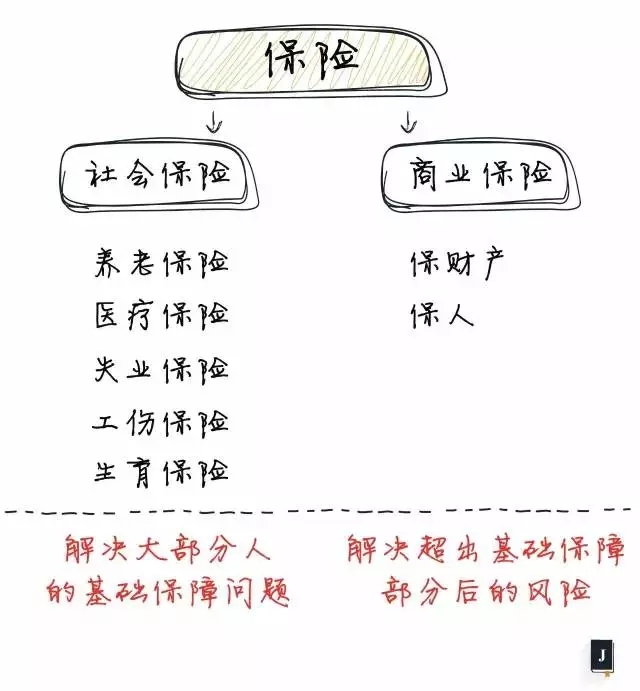 保险
社会保险
商业保险
养老保险
医疗保险
失业保险
工伤保险
生育保险
保财产
保人
解决大部分人
的基础保障问题
解决超出基础保障
部分后的风险
J